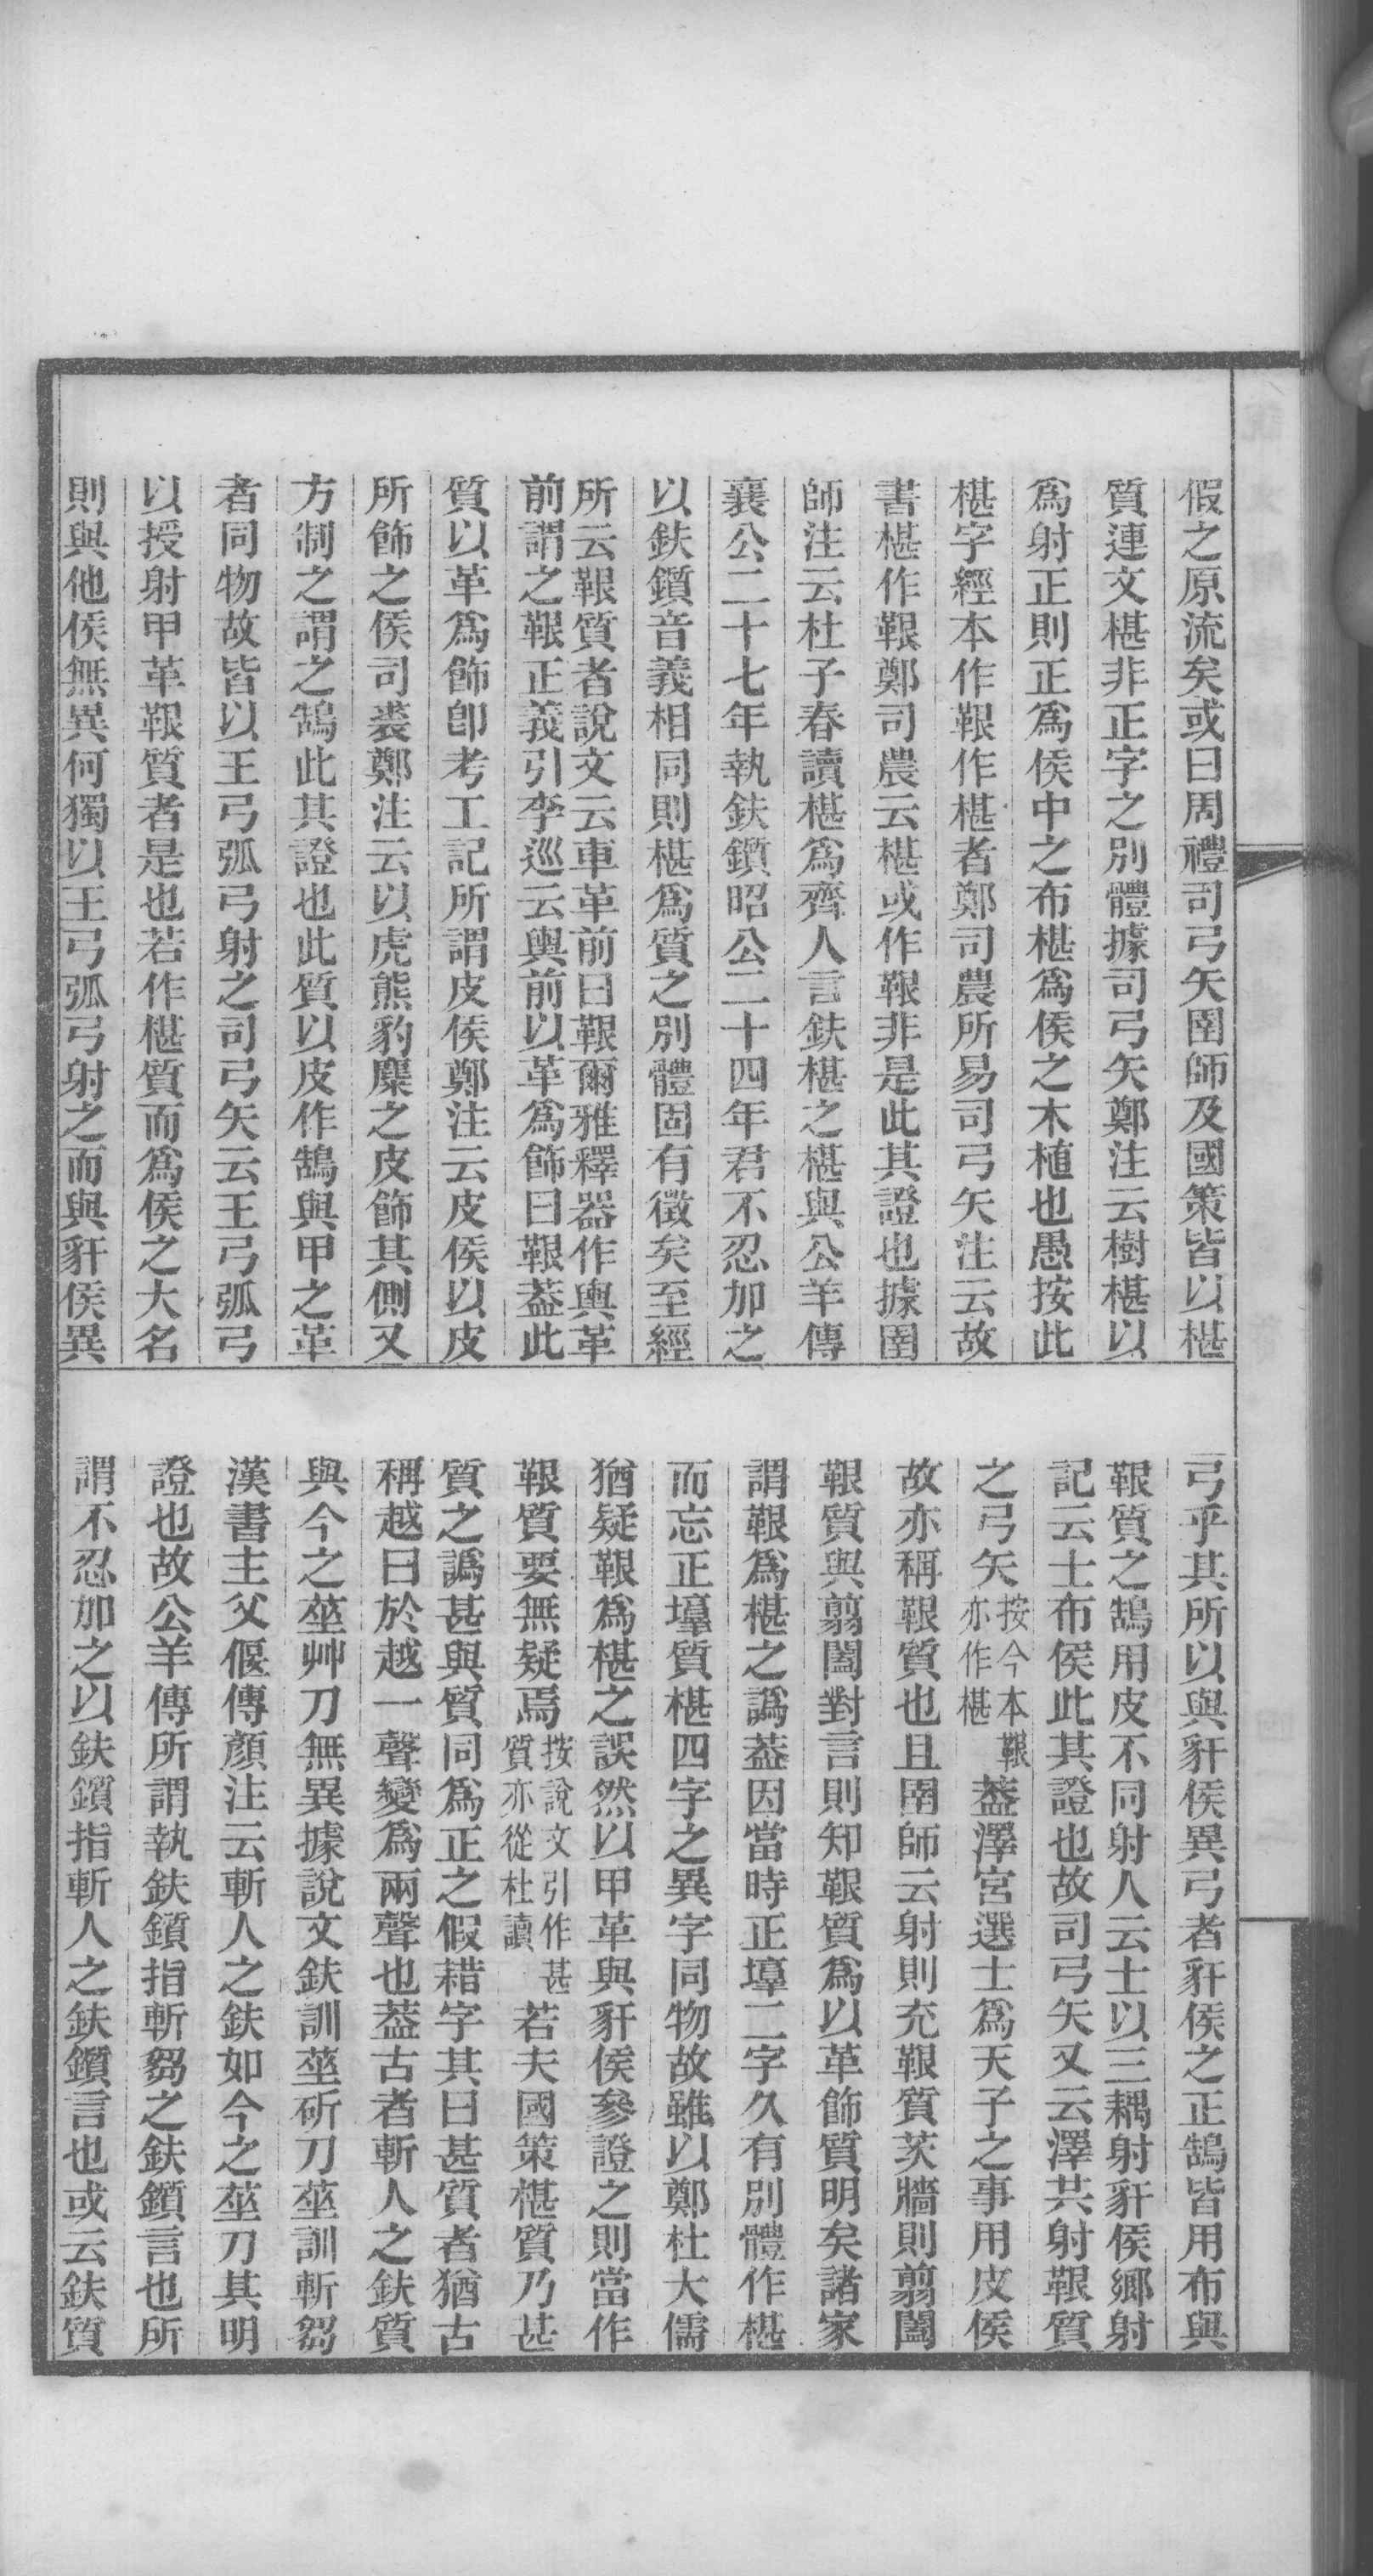 假之原流矣或曰周禮司弓矢圉師及國策皆以椹
質連文椹非正字之別體據司弓矢鄭注云樹椹以
爲射正則正爲侯中之布椹爲侯之木植也愚按此
椹字經本作鞎作椹者鄭司農所易司弓矢注云故
書椹作鞎鄭司農云椹或作鞎非是此其證也據圉
師注云杜子春讀椹爲齊人言鈇椹之椹與公羊傳
襄公二十七年執鈇鑕昭公二十四年君不忍加之
以鈇鑕音義相同則椹爲質之別體固有徵矣至經
所云鞎質者說文云車革前曰鞎爾雅釋器作輿革
前謂之鞎正義引李巡云輿前以革爲飾曰鞎葢此
質以革爲飾卽考工記所謂皮侯鄭注云皮侯以皮
所飾之侯司裘鄭注云以虎熊豹麋之皮飾其側又
方制之謂之鵠此其證也此質以皮作鵠與甲之革
者同物故皆以王弓弧弓射之司弓矢云王弓弧弓
以授射甲革鞎質者是也若作椹質而爲侯之大名
則與他侯無異何獨以王弓弧弓射之而與豻侯異
弓乎其所以與豻侯異弓者豻侯之正鵠皆用布與
鞎質之鵠用皮不同射人云士以三耦射豻侯鄉射
記云士布侯此其證也故司弓矢又云澤共射鞎質
之弓矢按今本鞎亦作椹葢澤宮選士爲天子之事用皮侯
故亦稱鞎質也且圉師云射則充鞎質茨牆則翦闔
鞎質與翦闔對言則知鞎質爲以革飾質明矣諸家
謂鞎爲椹之譌葢因當時正𡐨二字久有別體作椹
而忘正𡐨質椹四字之異字同物故雖以鄭杜大儒
猶疑鞎爲椹之誤然以甲革與豻侯參證之則當作
鞎質要無疑焉按說文引作甚質亦從杜讀若夫國策椹質乃甚
質之譌甚與質同爲正之假耤字其曰甚質者猶古
稱越曰於越一聲變爲兩聲也葢古者斬人之鈇質
與今之莝艸刀無異據說文鈇訓莝斫刀莝訓斬芻
漢書主父偃傳顏注云斬人之鈇如今之莝刀其明
證也故公羊傳所謂執鈇鑕指斬芻之鈇鑕言也所
謂不忍加之以鈇鑕指斬人之鈇鑕言也或云鈇質